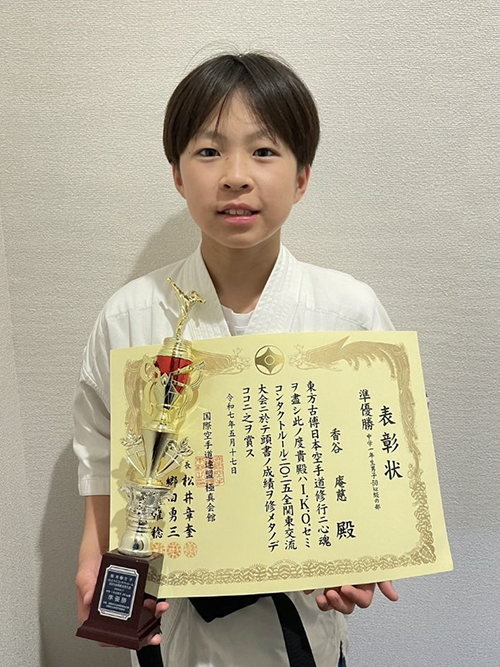 表彰状
準優勝 中学一年生男子-50kg級の部
香谷 庵慈 殿
東方古傳日本空手道修行ニ心魂
ヲ盡シ此ノ度貴殿ハI.K.Oセミ
コンタクトルール二〇二五全関東交流
大会ニ於テ頭書ノ成績ヲ修メタノデ
ココニ之ヲ賞ス
令和七年五月十七日
国際空手道連盟 極真会館
長 松井章奎
郷田勇三
稔
準優勝